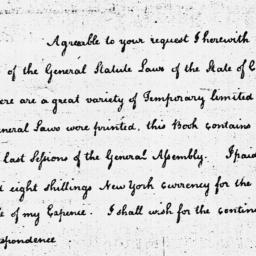 Agreable to your request I herewith
of the General Statute Laws of the State of C
ere are a great variety of Temporary limited
eneral Laws were printed, this Book contains
last Sessions of the General Assembly. I paid
eight Shillings New York Currency for the
of my Expence. I shall wish for the contin
spondence